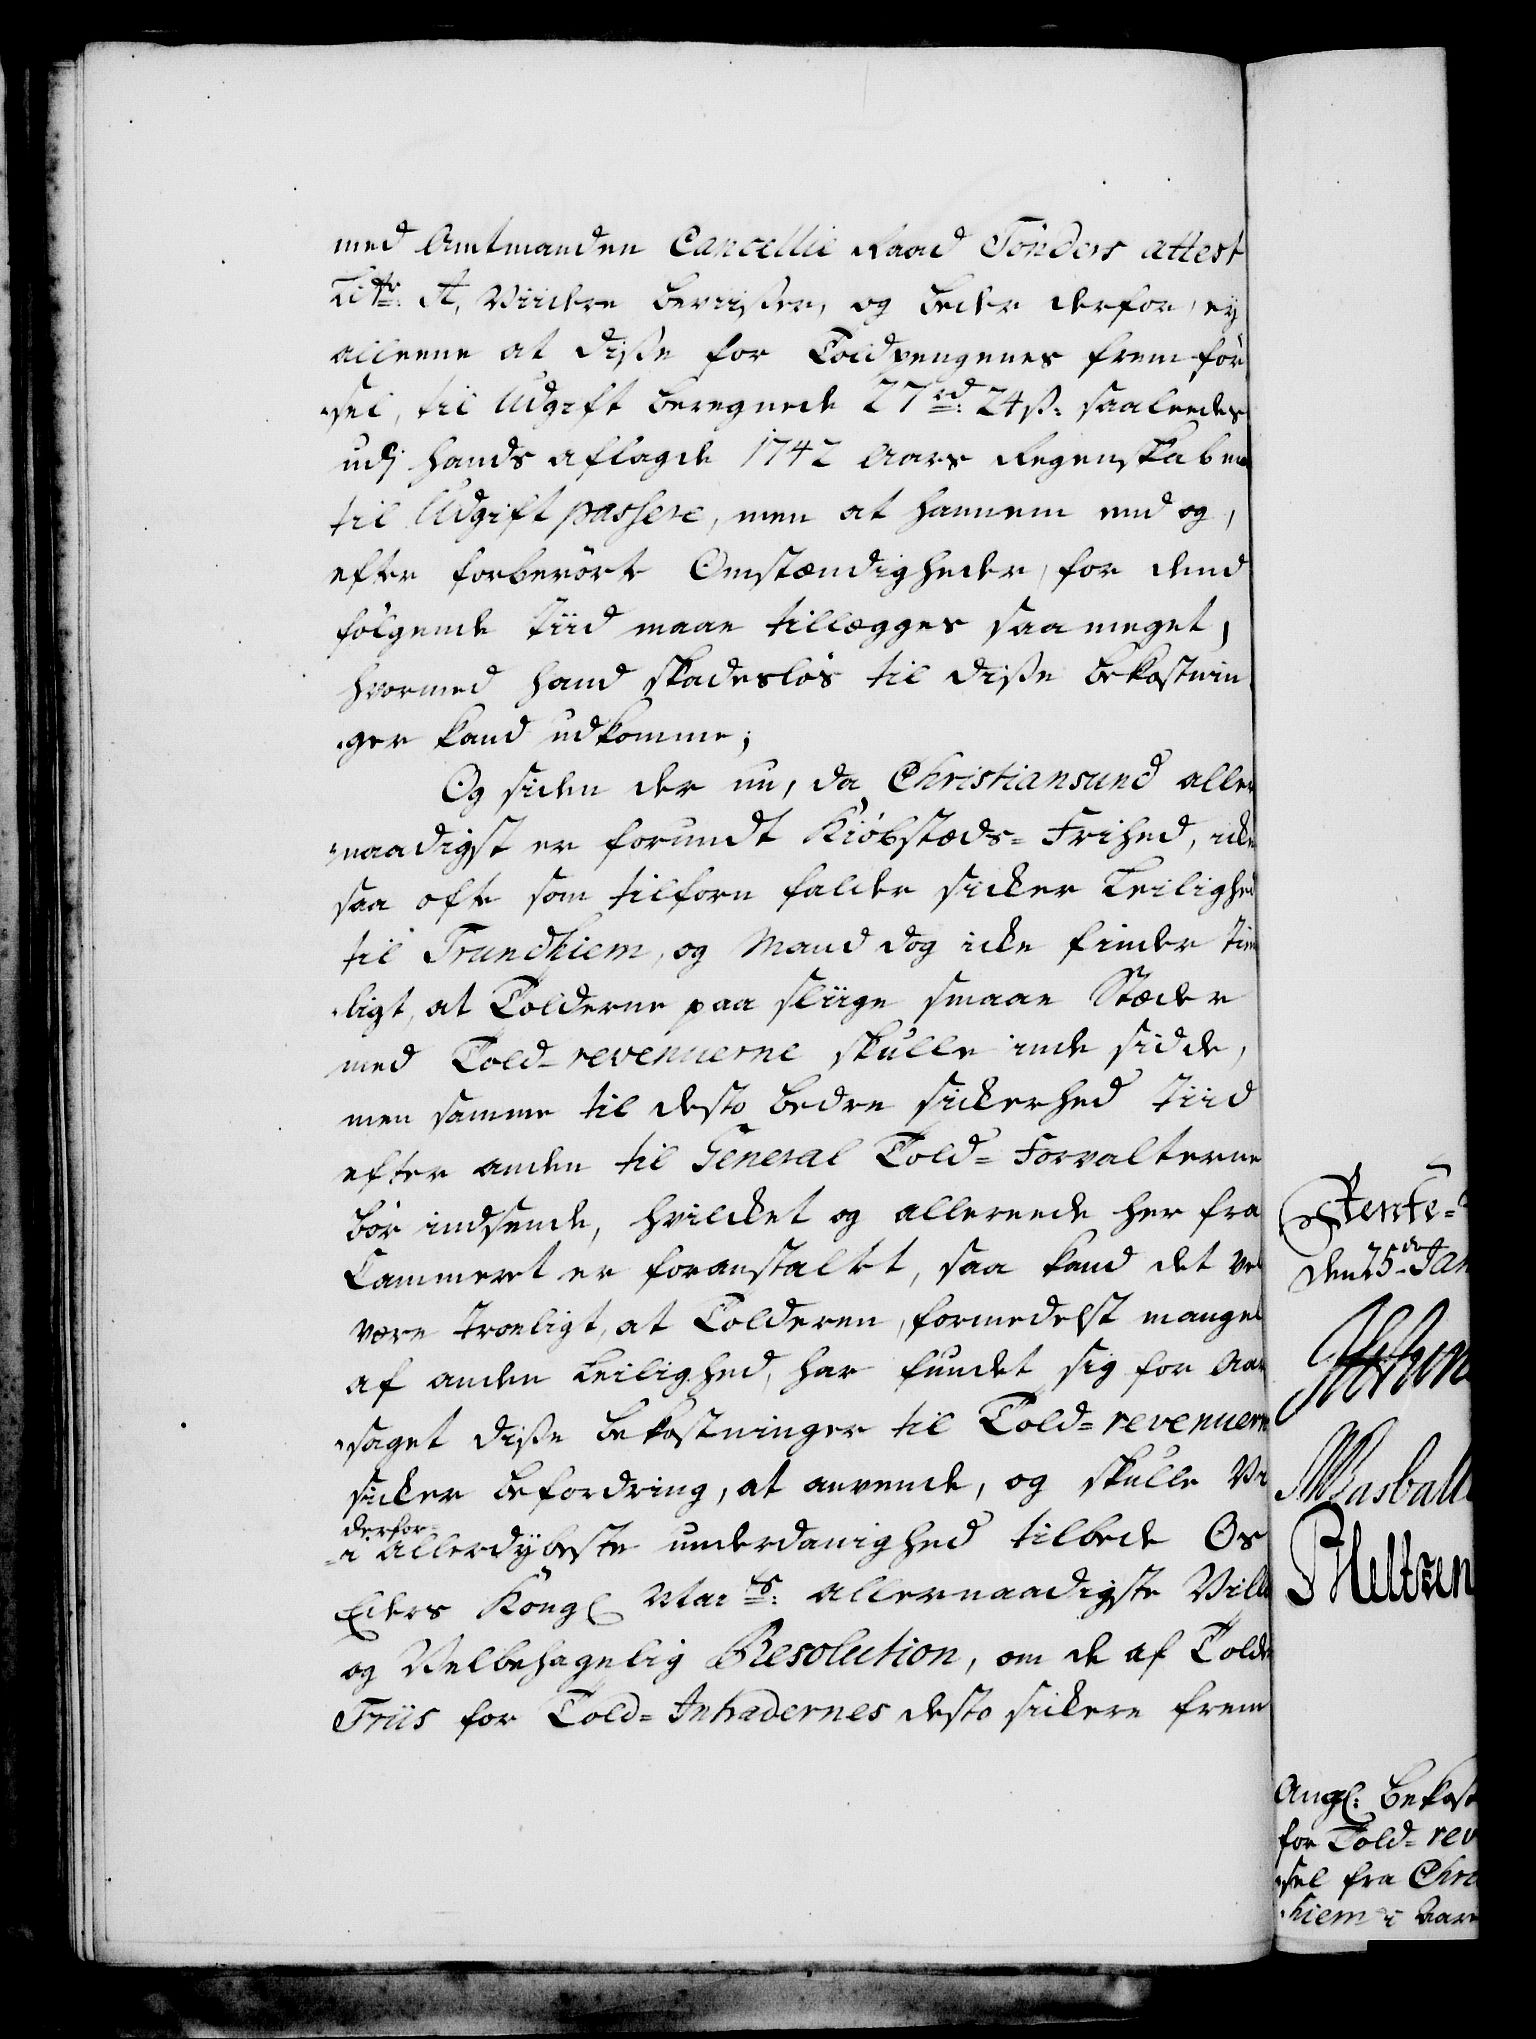 med Amtmanden Cancellie Raad Tönders attest
Littr: A, viidere beviiser, og beder derfor, ey
alleene at disse for Toldpengenes frem för
sel, til Udgift beregnede 27 rd: 24 ß. saaledes
udj hands aflagde 1742 Aars Regenskaber
til Udgift passere, men at hannem end og,
efter forberörte Omstændigheder, for dend
fölgende tiid maae tillægges saa meget,
hvormed hand skadeslös til disse bekostnin
ger kand udkomme;
Og siden der nu, da Christiansund aller
naadigst er forundt Kiöbstæds-Frihed, icke
saa ofte som tilforn falder sicker Leilighed
til Trundhiem, og Mand dog icke finder tien
ligt, at Tolderne paa sliige smaae Stæder
med Told-revenuerne skulle inde sidde,
men samme til desto bedre sickerhed tiid
efter anden til General Told-Forvalterne
bör indsende, hvilcket og allereede her fra
Cammeret er foranstaltet, saa kand det vel
være troeligt, at Tolderen, formedelst mangel
af anden Leilighed, har fundet sig for Aar
saget disse bekostninger til Told-revenuernes
sicker befordring, at anvende, og skulle Vi
derfor
i allerdybeste underdanighed tilbede Os
Eders Kongl Mai ts: allernaadigste Villie
og Velbehagelig Resolution, om de af Tolder
Friis for Told-Intradernes desto sickere frem
Rente-
den 25 de Jan
Angl: bekost
for Told-rev
sel fra Chri
hiem i Aar